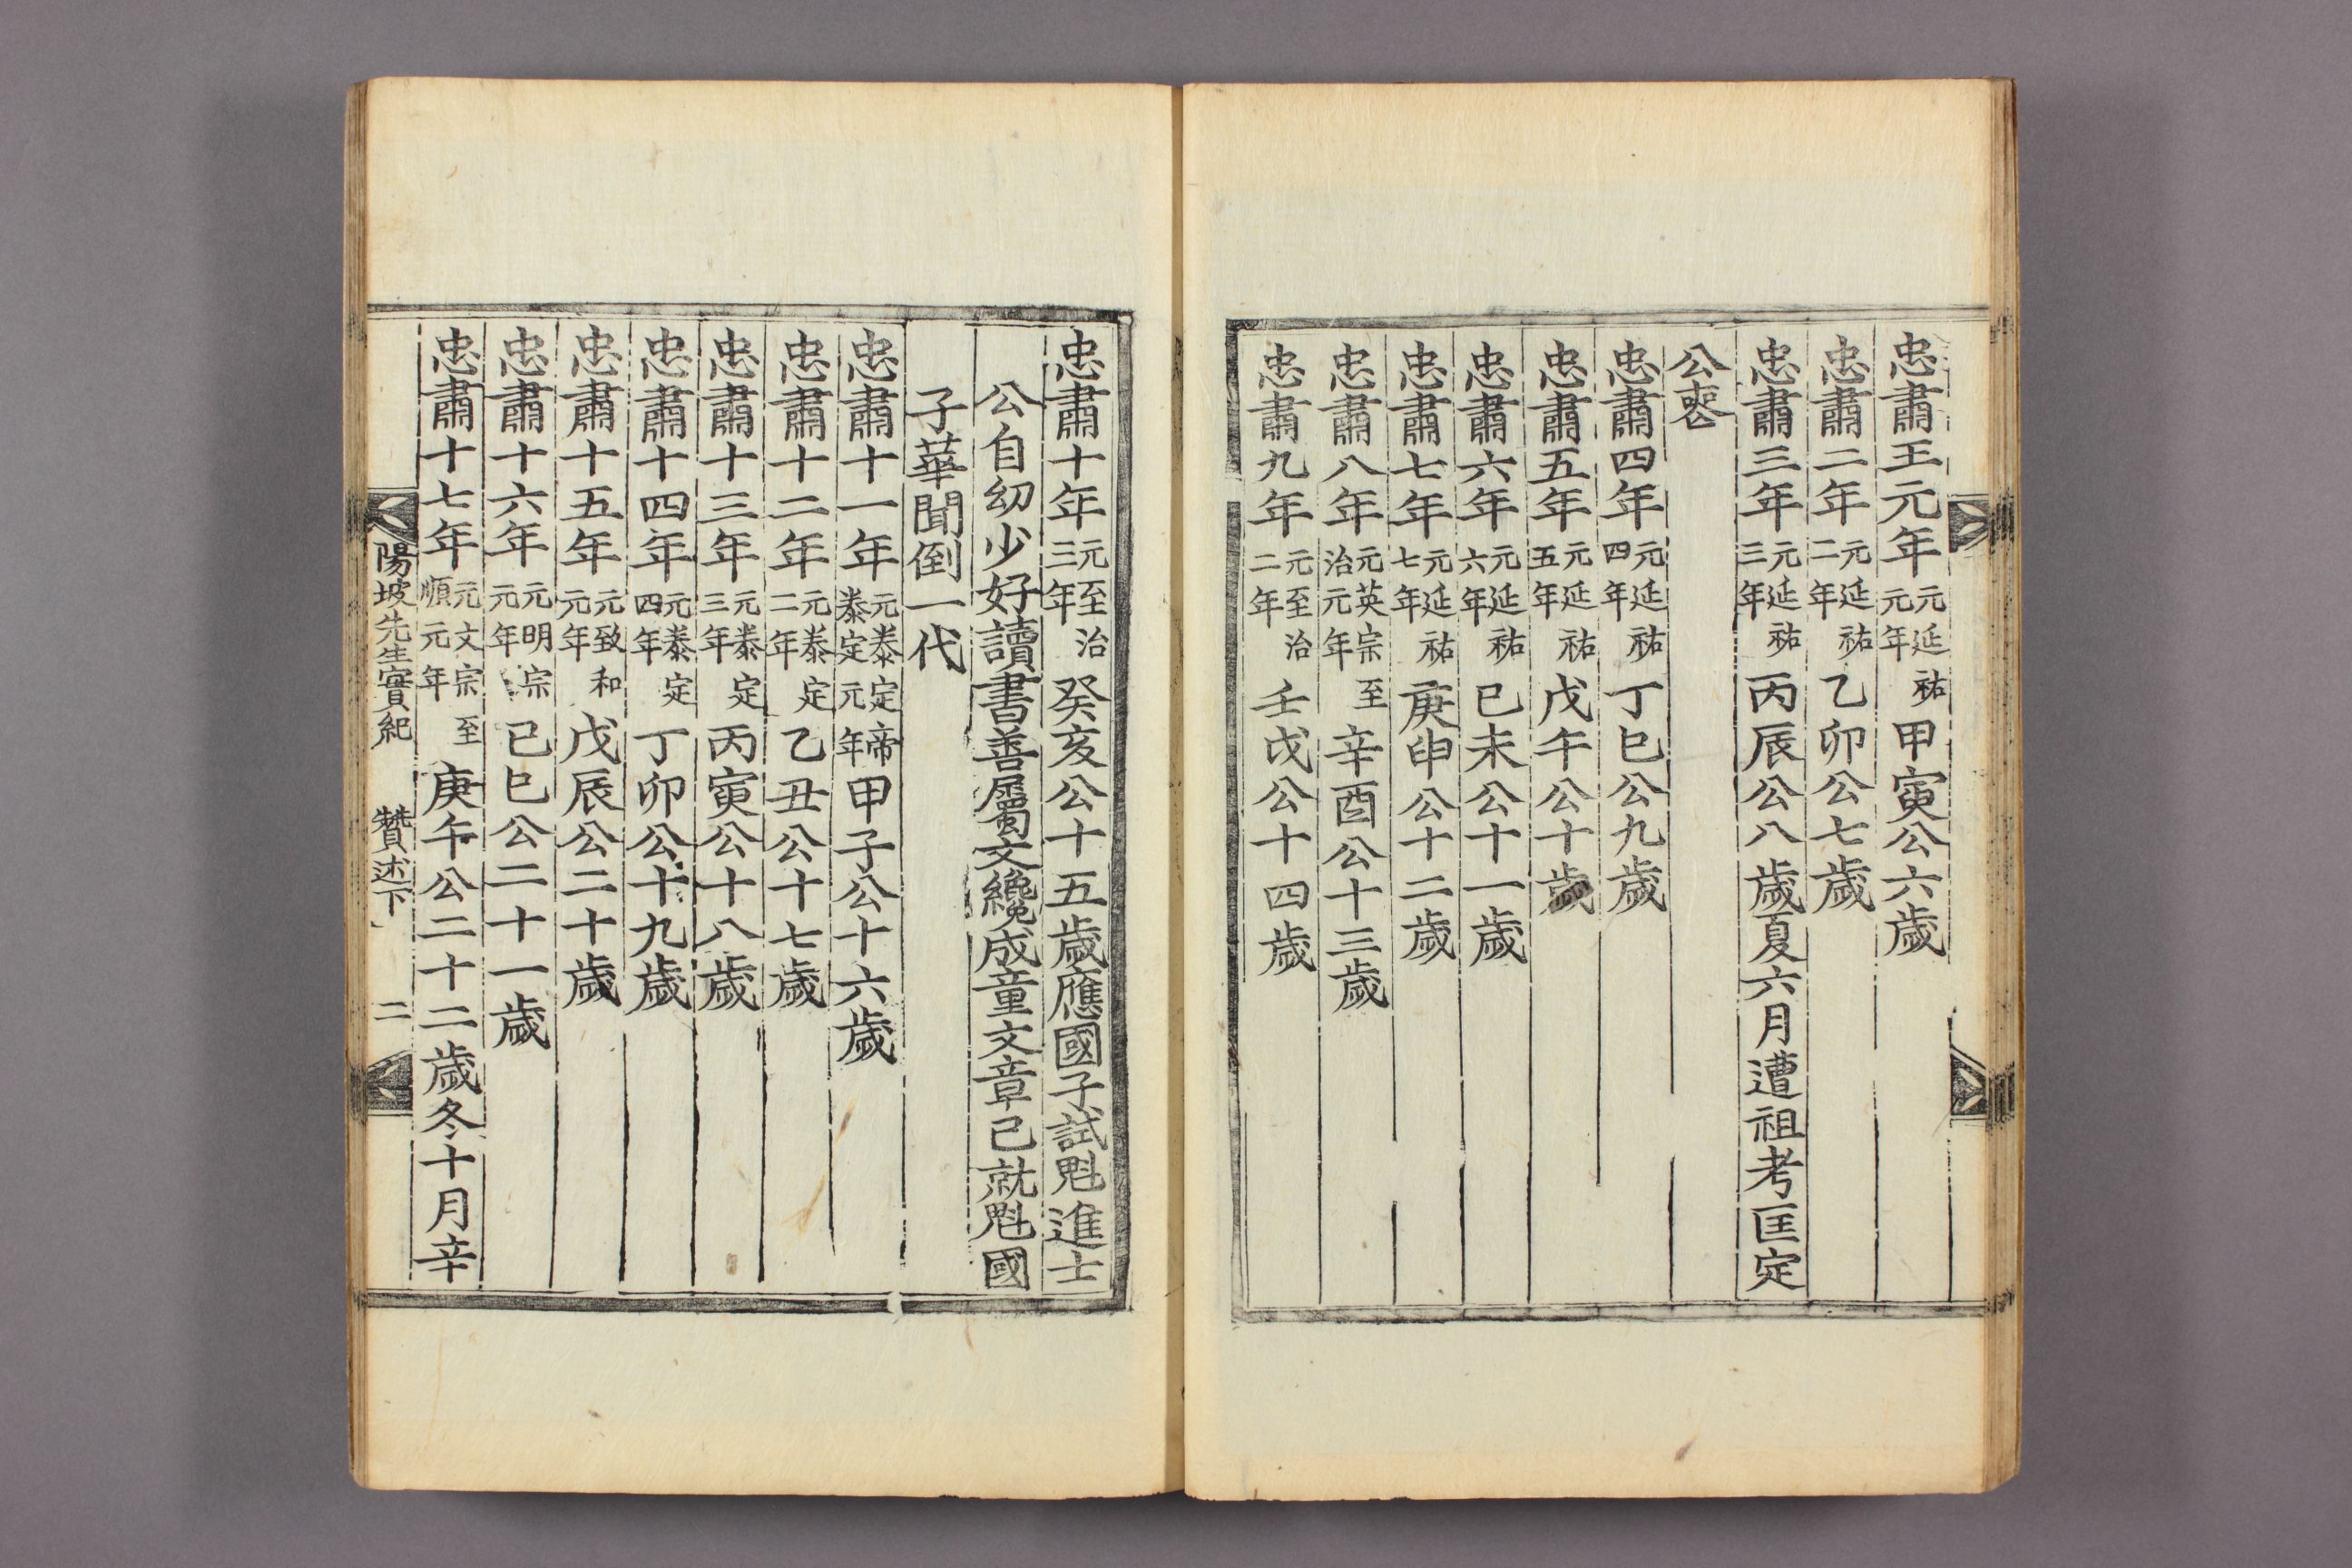 忠肅王元年元延祐元年甲寅公六歲
忠肅二年元延祐二年乙卯公七歲
忠肅三年元延祐三年丙辰公八歲夏六月遭祖考匡定
公喪
忠肅四年元延祐四年丁巳公九歲
忠肅五年元延祐五年戊午公十歲
忠肅六年元延祐六年己未公十一歲
忠肅七年元延祐七年庚申公十二歲
忠肅八年元英宗至治元年辛酉公十三歲
忠肅九年元至治二年壬戌公十四歲
忠肅十年元至治三年癸亥公十五歲應國子試魁進士
公自幼少好讀書善屬文纔成童文章已就魁國
子華聞倒一代
忠肅十一年元泰定帝泰定元年甲子公十六歲
忠肅十二年元泰定二年乙丑公十七歲
忠肅十三年元泰定三年丙寅公十八歲
忠肅十四年元泰定四年丁卯公十九歲
忠肅十五年元致和元年戊辰公二十歲
忠肅十六年元明宗元年己巳公二十一歲
忠肅十七年元文宗至順元年庚午公二十二歲冬十月辛
陽坡先生實紀 贊述下 二